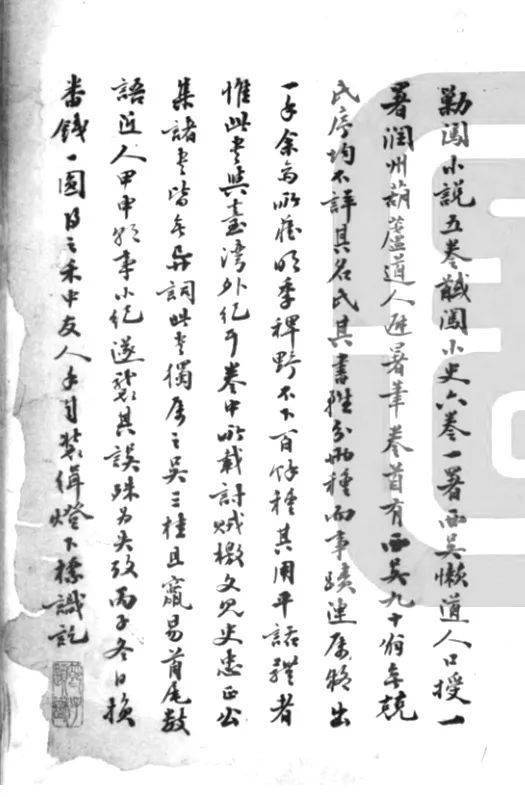 勦闖小説五卷馘闖小史六卷一署西吳懶道人口授一
署潤州葫蘆道人避暑筆卷首有西吳九十翁無競
氏序均不詳其名氏其書雖分兩種而事蹟連屬務出
一手余嵩所藏明季稗野不下百餘種其用平話體者
惟此書與臺灣外紀耳卷中所載討賊檄文見史忠正公
集諸書皆無異詞此書獨屬之吳三桂且竄易首尾數
語近人甲申朝事小紀遂襲其誤殊為失攷丙子冬日換
番錢一圓得之禾中友人手自裝緝燈下標識訖